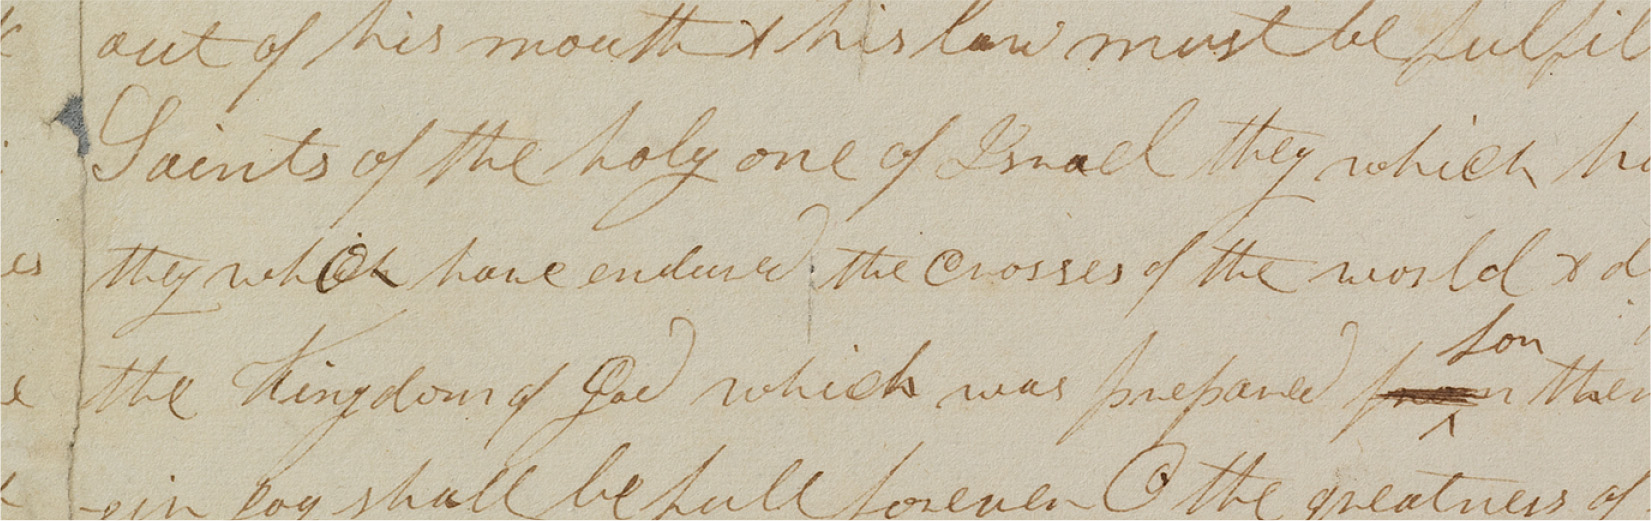 out of his mouth & his law must be fulfil
Saints of the holy one of Israel they which h
es they which have endured the Crosses of the world & d
for
the Kingdom of God which was prepared from them
-eir Joy shall be full forever O the greatness of